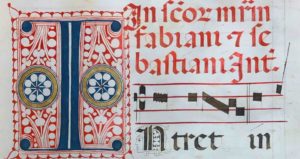 In scōr mr̄m
fabiani ⁊ se
bastiani Int̄.
Ntret in